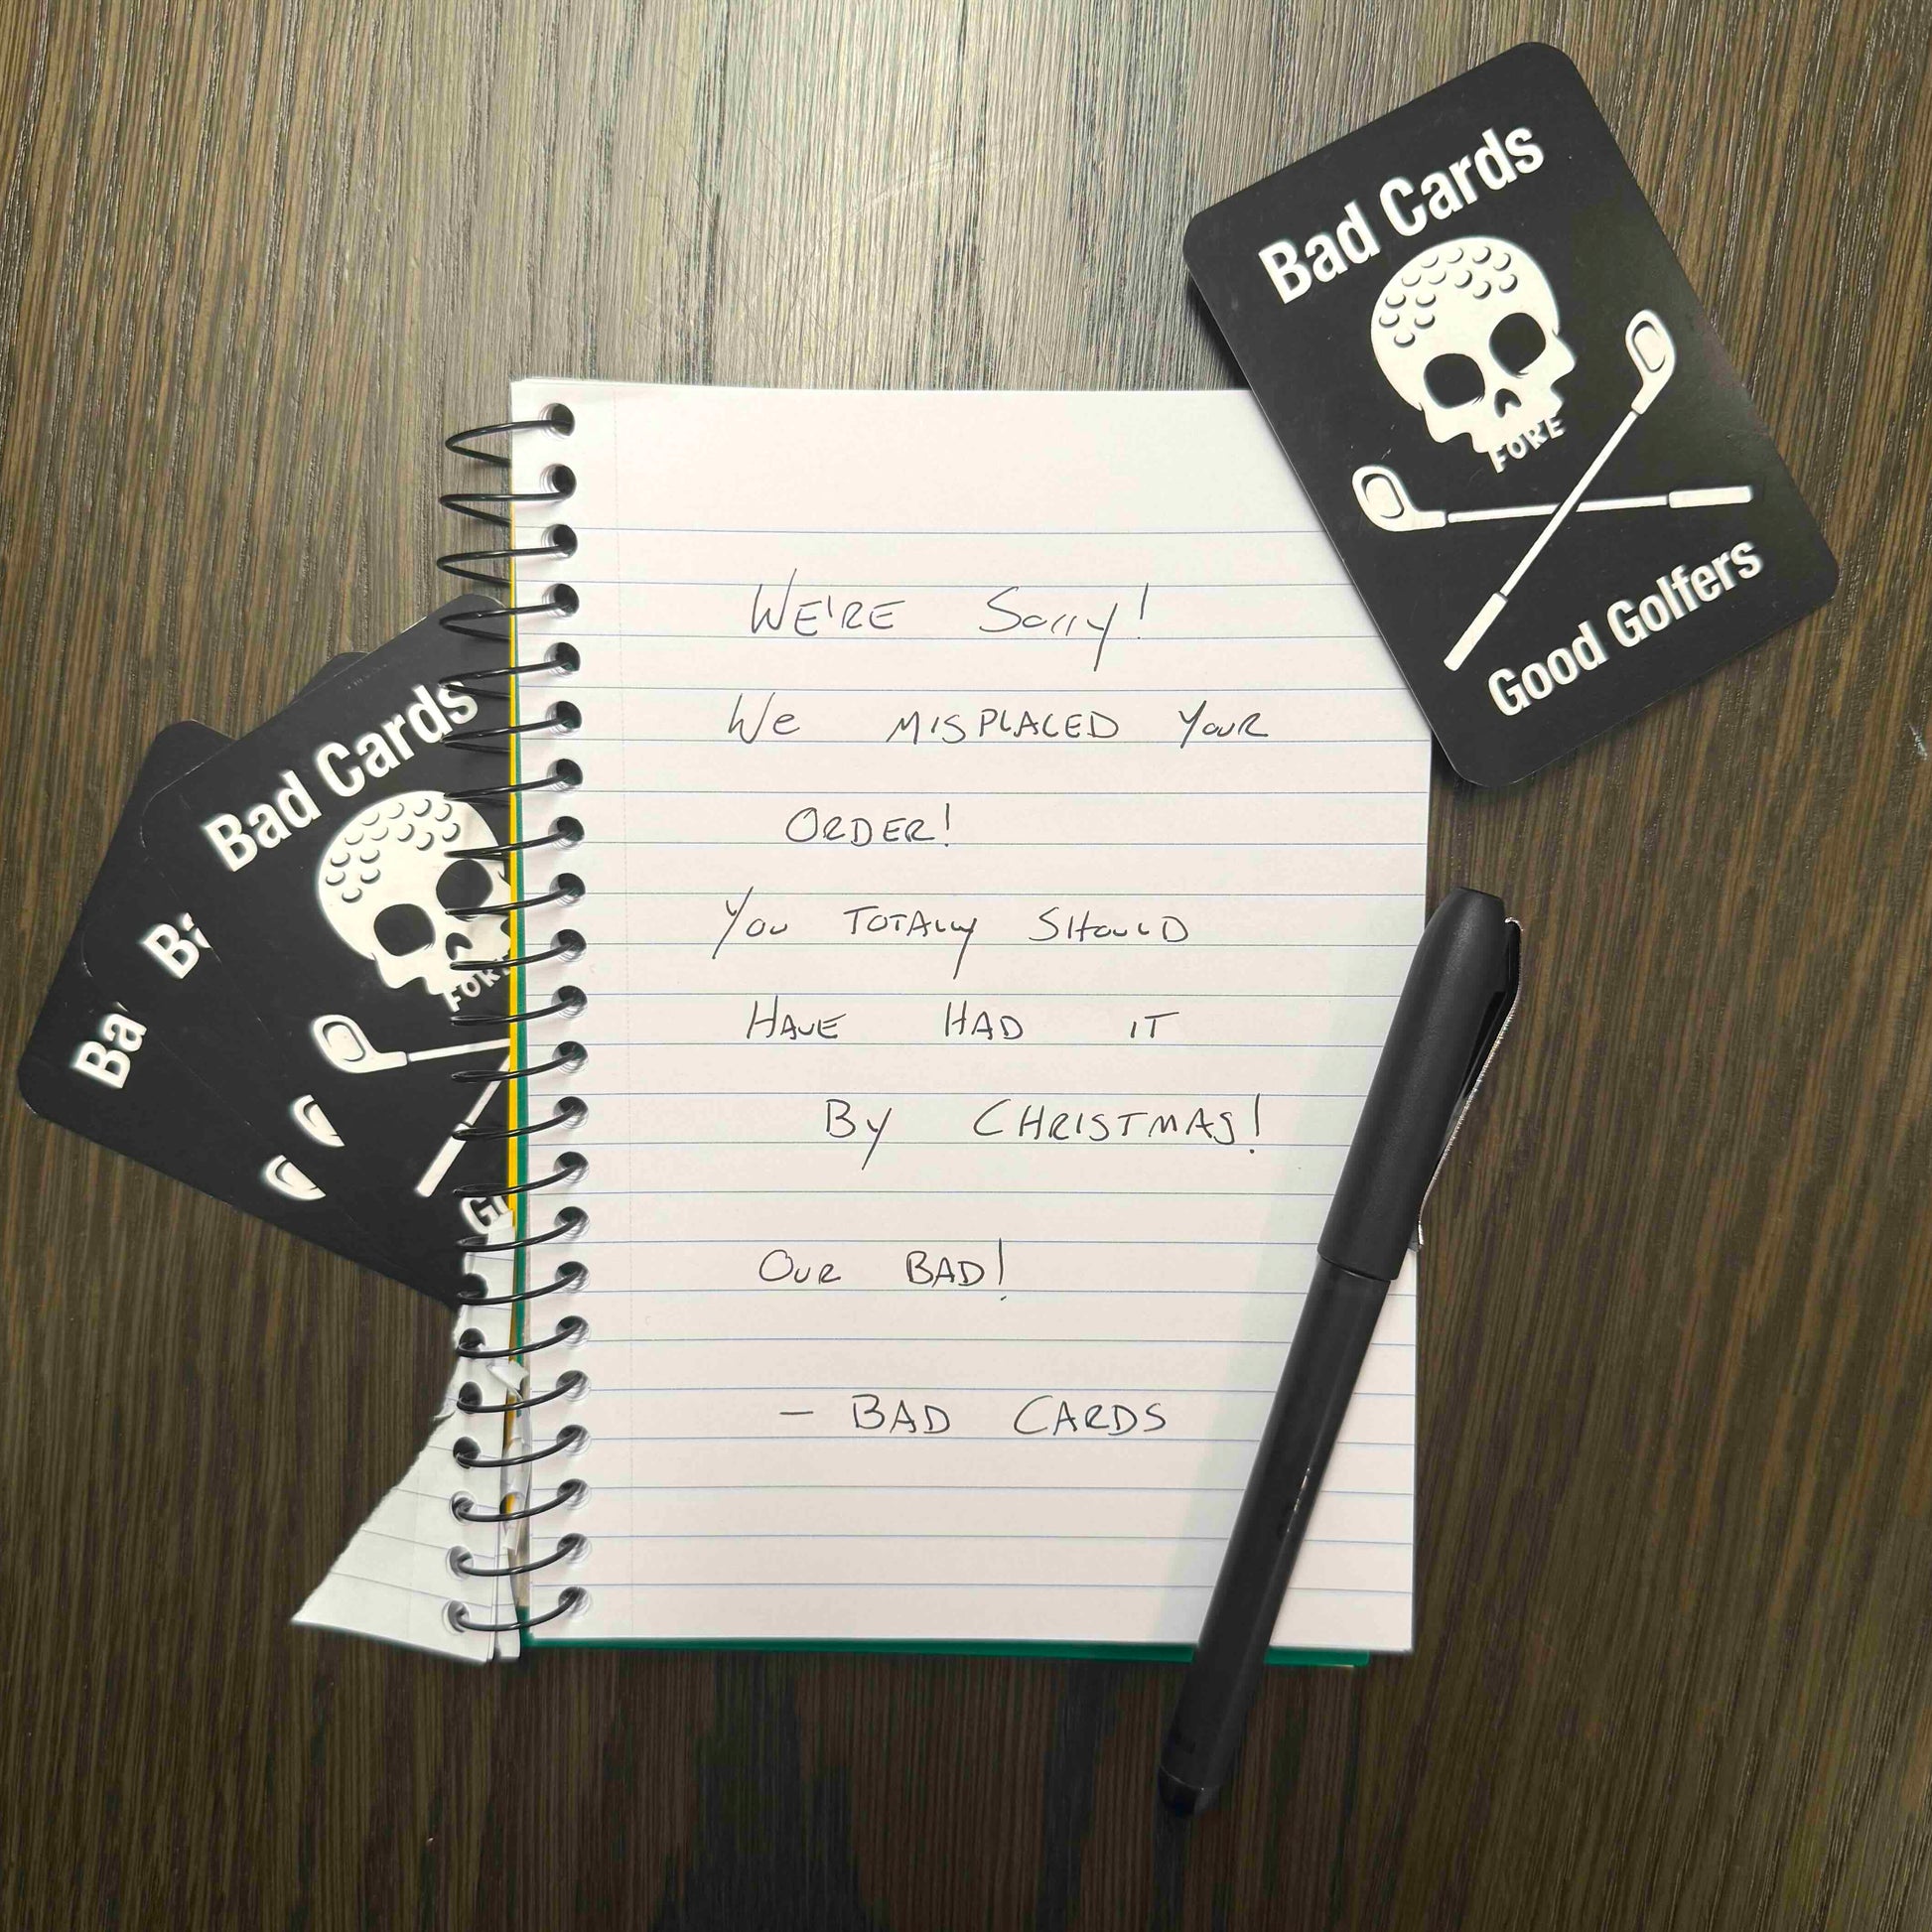 Bad Cards
FORE
Good Golfers
WE'RE Sorry!
We MISPLACED YOUR
ORDER!
You TOTALLY SHOULD
HAVE HAD IT
By CHRISTMAS!
OUR BAD!
- BAD CARDS
Bad Cards
FORE
Go
Ba
Ba